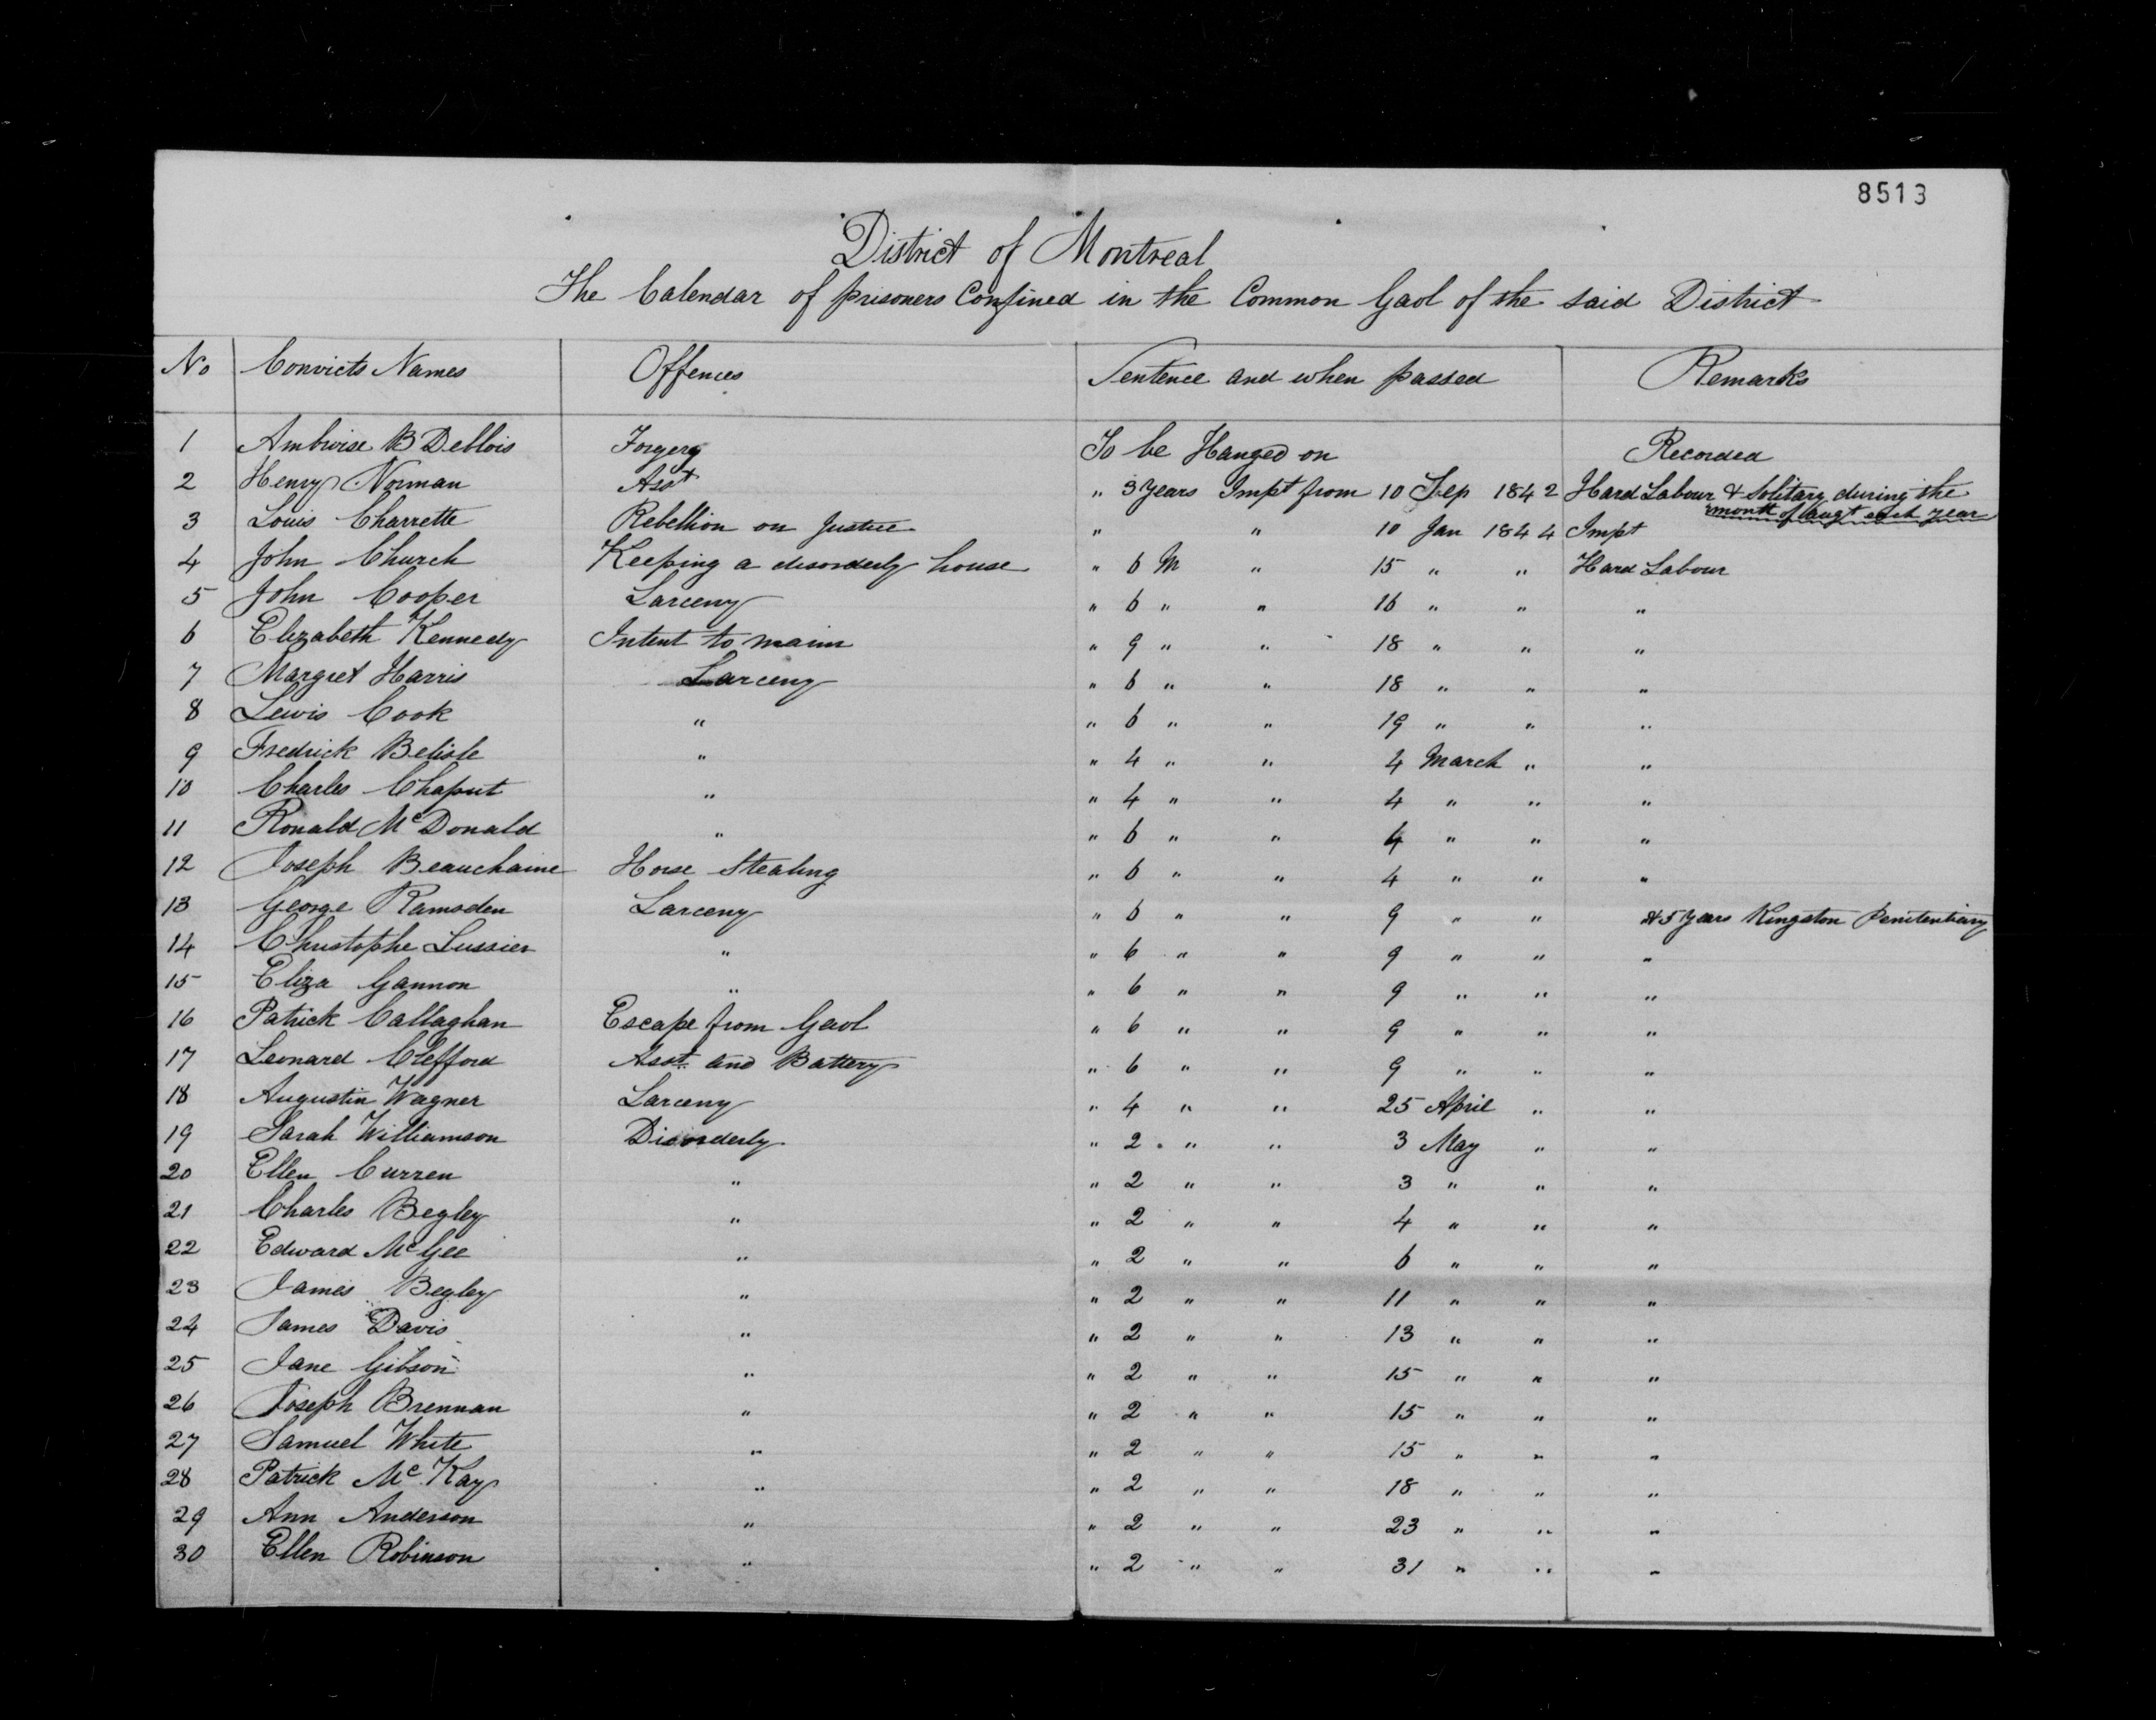 8513
District of Montreal
The Calendar of prisoners Confined in the Common Gaol of the said District
No Convicts Names Offences Sentence and when passed Remarks
1 Ambroise B Deblois Forgery To be Hanged on Recorded
2 Henry Norman Asst " 3 years Impt from 10 Sep 1842 Hard Labour & Solitary during the
month of augt each year
3 Louis Charrette Rebellion on Justice " " 10 Jan 1844 Impt
4 John Church Keeping a disorderly house " 6 M " 15 " " Hard Labour
5 John Cooper Larceny " 6 " " 16 " " "
6 Elizabeth Kennedy Intent to maim " 9 " " 18 " " "
7 Margret Harris Larceny " 6 " " 18 " " "
8 Lewis Cook " " 6 " " 19 " " "
9 Fredrick Belisle " " 4 " " 4 March " "
10 Charles Chaput " " 4 " " 4 " " "
11 Ronald McDonald " " 6 " " 4 " " "
12 Joseph Beauchaine Horse Stealing " 6 " " 4 " " "
13 George Ramsden Larceny " 6 " " 9 " " 5 years Kingston Penitentiary
14 Christophe Lussier " " 6 " " 9 " " "
15 Eliza Gannon " " 6 " " 9 " " "
16 Patrick Callaghan Escape from Gaol " 6 " " 9 " " "
17 Leonard Clefford Asst. and Battery " 6 " " 9 " " "
18 Augustin Wagner Larceny " 4 " " 25 April " "
19 Sarah Williamson Disorderly " 2 " " 3 May " "
20 Ellen Curren " " 2 " " 3 " " "
21 Charles Begley " " 2 " " 4 " " "
22 Edward McGee " " 2 " " 6 " " "
23 James Begley " " 2 " " 11 " " "
24 James Davis " " 2 " " 13 " " "
25 Jane Gibson " " 2 " " 15 " " "
26 Joseph Brennan " " 2 " " 15 " " "
27 Samuel White " " 2 " " 15 " " "
28 Patrick McKay " " 2 " " 18 " " "
29 Ann Anderson " " 2 " " 23 " " "
30 Ellen Robinson " " 2 " " 31 " " "